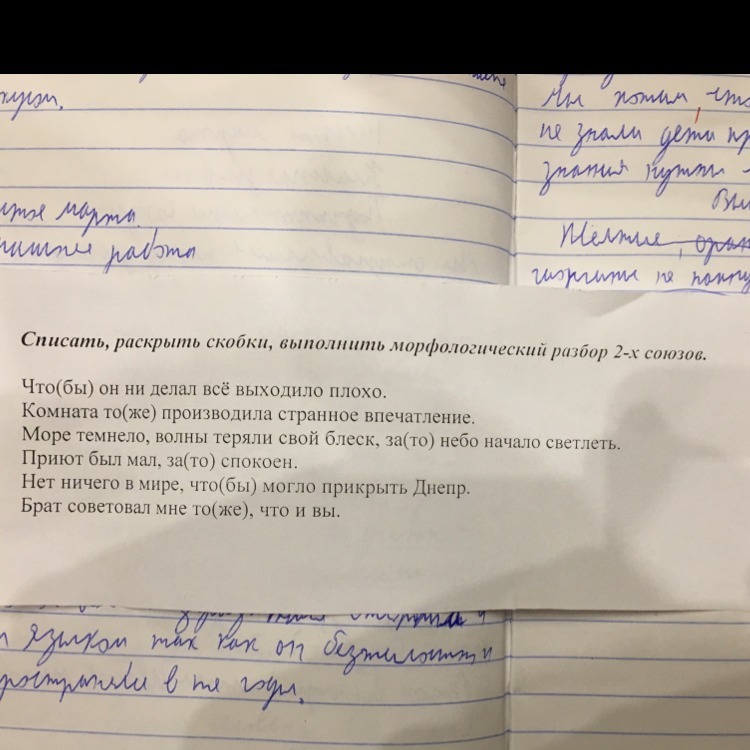 Мы хотим, что
не знали дети пр
знания нужны
марта
работа
Желтые, оран
не
Списать, раскрыть скобки, выполнить морфологический разбор 2-х союзов.
Что(бы) он ни делал всё выходило плохо.
Комната то(же) производила странное впечатление.
Море темнело, волны теряли свой блеск, за(то) небо начало светлеть.
Приют был мал, за(то) спокоен.
Нет ничего в мире, что(бы) могло прикрыть Днепр.
Брат советовал мне то(же), что и вы.
языком так как он
в те годы.